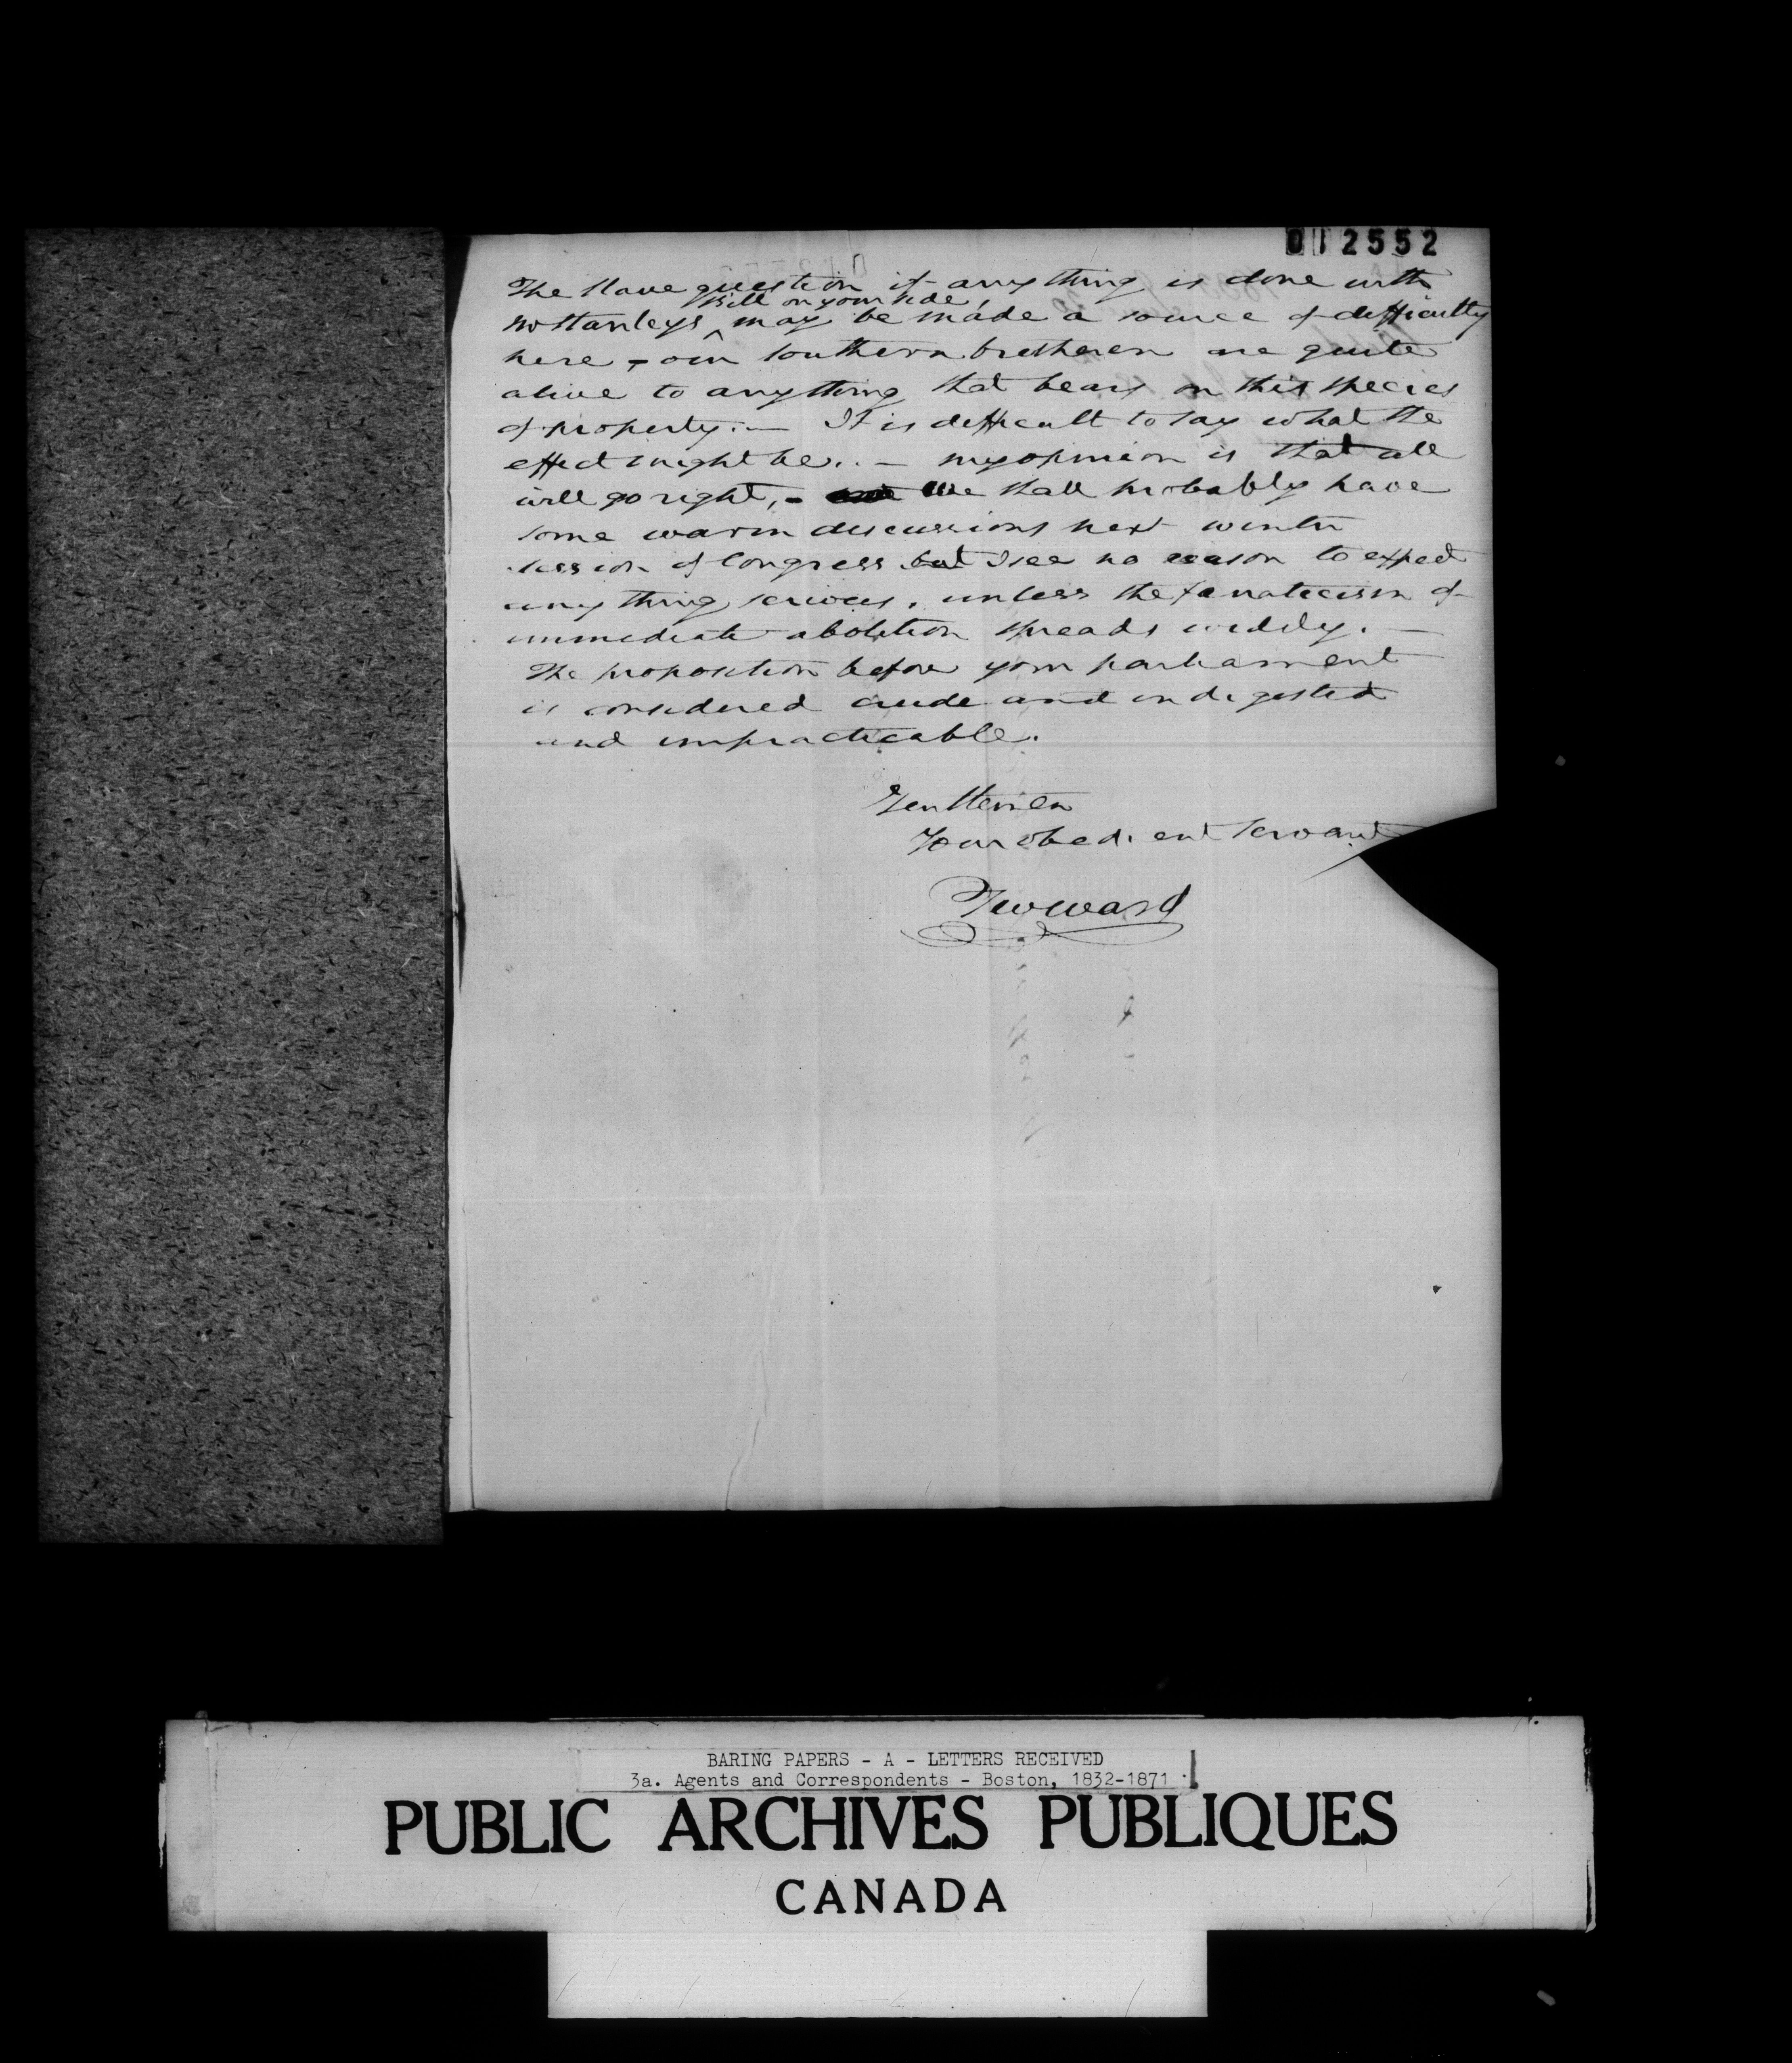 012552
The slave question if anything is done with
Mr Stanleys ^ bill on your side, may be made a source of difficulty
here, our Southern bretheren are quite
alive to anything that bears on this species
of property.— It is difficult to say what the
effect might be.. — my opinion is that all
will go right, - We shall probably have
some warm discussions next winter
session of Congress but I see no reason to expect
any thing serious, unless the fanaticism of
immediate abolition spreads widely. —
The proposition before your parliament
is considered crude and indigested
and impracticable.
Gentlemen
Your obedient Servant
TWWard
BARING PAPERS - A - LETTERS RECEIVED
3a. Agents and Correspondents - Boston, 1832-1871
PUBLIC ARCHIVES PUBLIQUES
CANADA